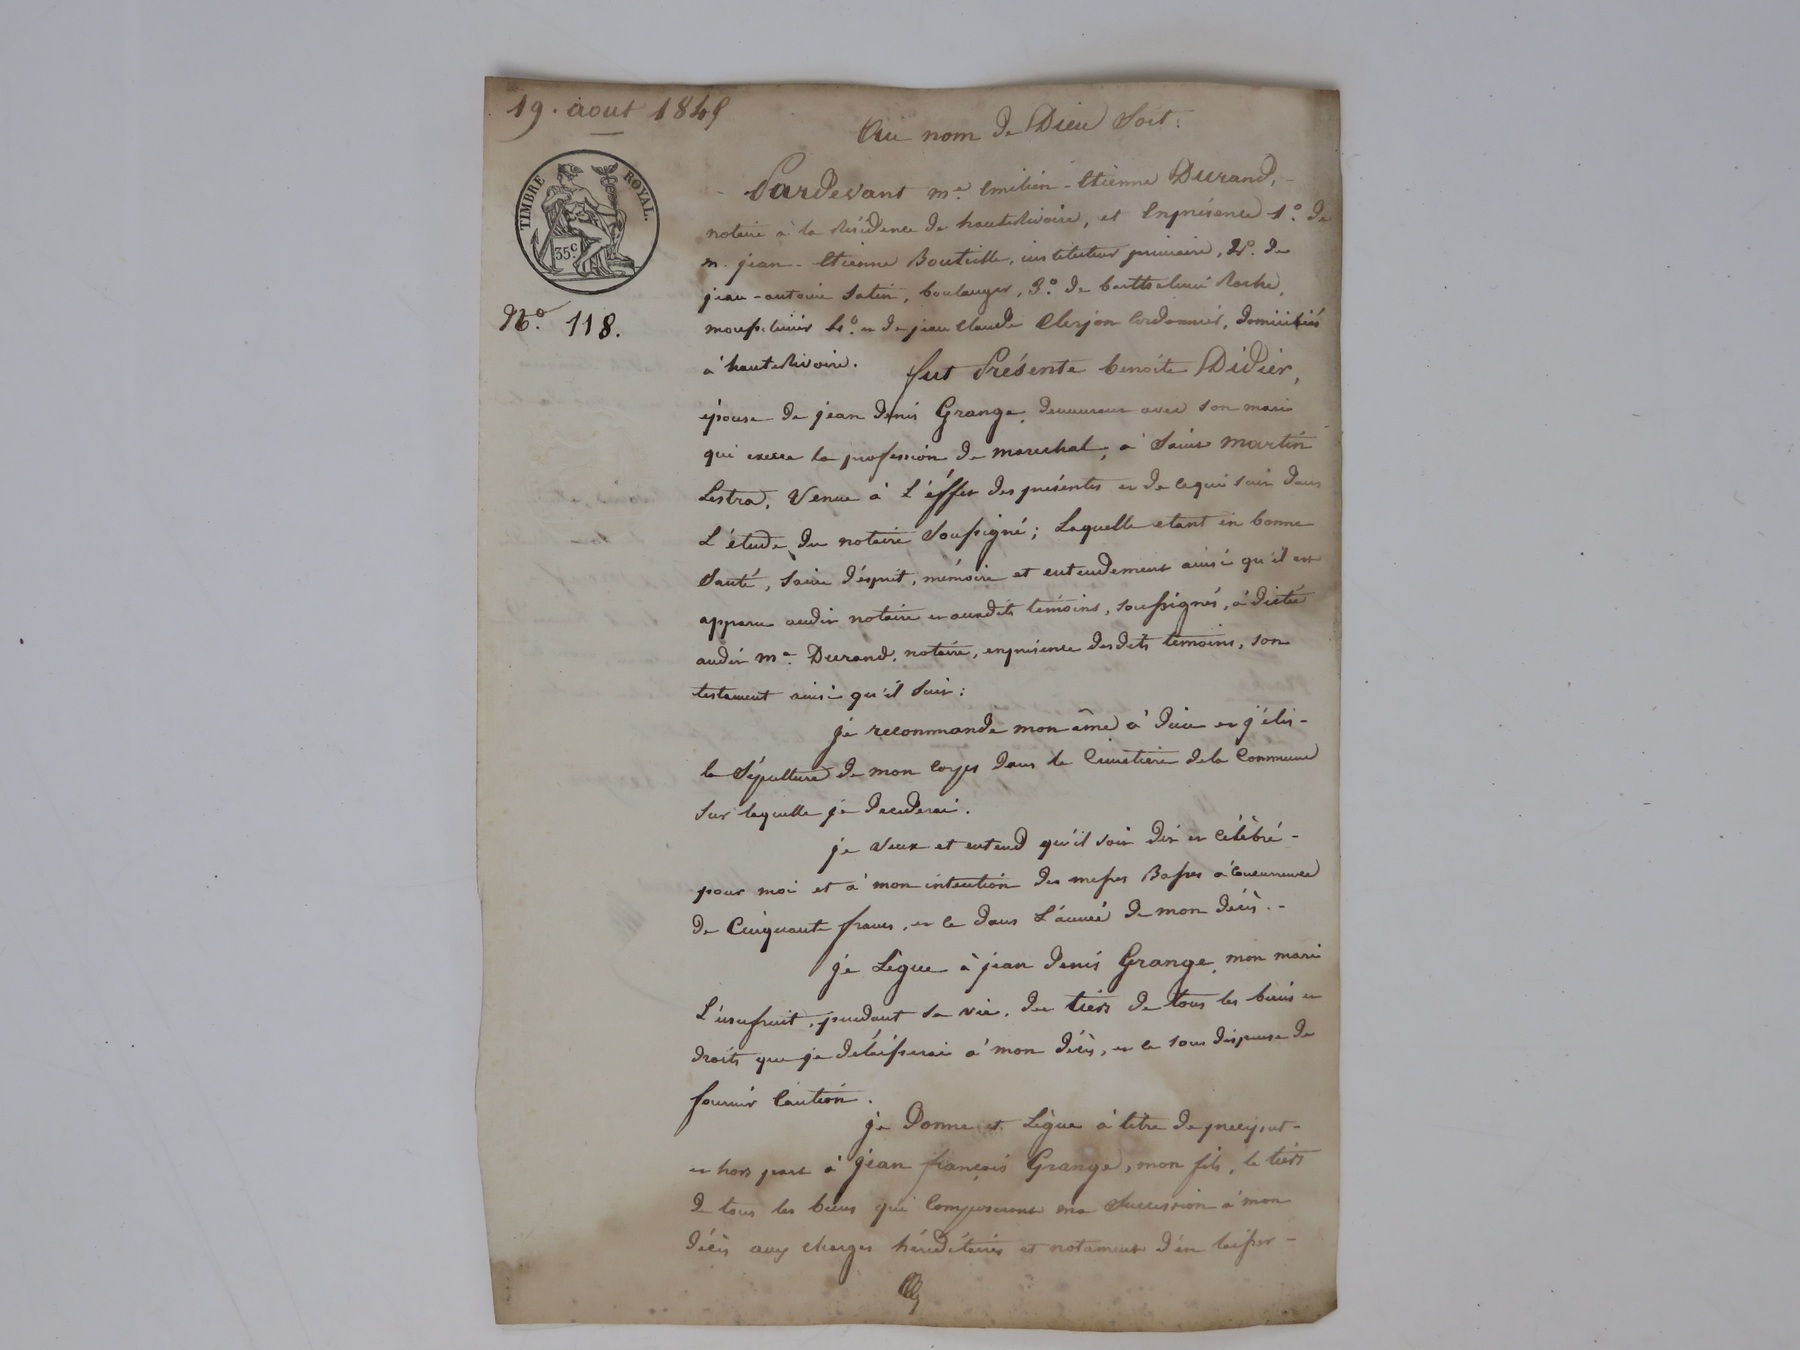 19. aout 1845
Au nom de Dieu soit:
TIMBRE ROYAL.
35c.
No. 118.
Pardevant me. emilien-Etienne Durand,
notaire à la Résidence de hauteRivoire, et Enprésence 1o. de
m. jean-Etienne Bouteille, instituteur primaire, 2o. de
jean-antoine satin, boulanger, 3o. de barthelemi Roche,
4o. et de jean Claude Clerjon Cordonnier, domiciliés
à hauteRivoire. fut Présente benoite Didier,
épouse de jean denis Grange, demeurant avec son mari
qui exerce la profession de marechal, à Saint martin
Lestra, Venue à L'éffet des présentes et de cequi suit dans
L'étude du notaire soussigné; Laquelle etant en bonne
Santé, saine d'ésprit, mémoire et entendement ainsi qu'il est
apparu audit notaire et auxdits témoins, soussignés, à dicté
audit me. Durand, notaire, enprésence desdits témoins, son
testament ainsi qu'il suit:
je recommande mon âme à dieu et j'élis-
la Sépulture de mon corps dans le Cimetière dela Commune
sur laquelle je décéderai.
je veux et entend qu'il soit dit et célèbré-
pour moi et à mon intention des messes Basses à Concurrence
de Cinquante francs, et ce dans L'année de mon décès.-
je Lègue à jean denis Grange, mon mari
L'usufruit, pendant sa vie, du tiers de tous les biens et
droits que je délaisserai à mon décès, et ce sous dispense de
fournir Caution.
je Donne et Lègue à titre de preciput-
et hors part à jean françois Grange, mon fils, le tiers
de tous les biens qui Composeront ma Succession à mon
décès aux charges héréditaires et notament d'én laisser-